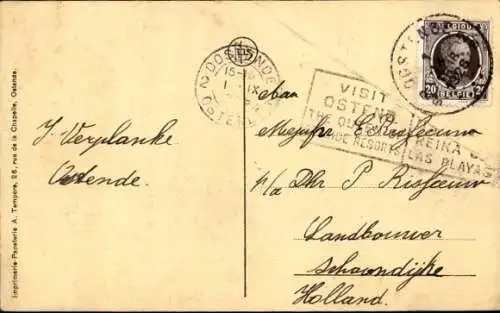 Imprimerie-Papeterie A. Tempere, 26, rue de la Chapelle, Ostende.
J. Verplanke
Ostende.
OOSTENDE
15-
1-IX
OSTENDE
VISIT
OSTEND
THE QUEEN
SEASIDE RESORTS
REINA
LAS PLAYAS
BELGIQUE
20
BELGIE
Aan
Mejufr E. Risseeuw
p/a Dhr P Risseeuw
Landbouwer
Schoondijke
Holland.